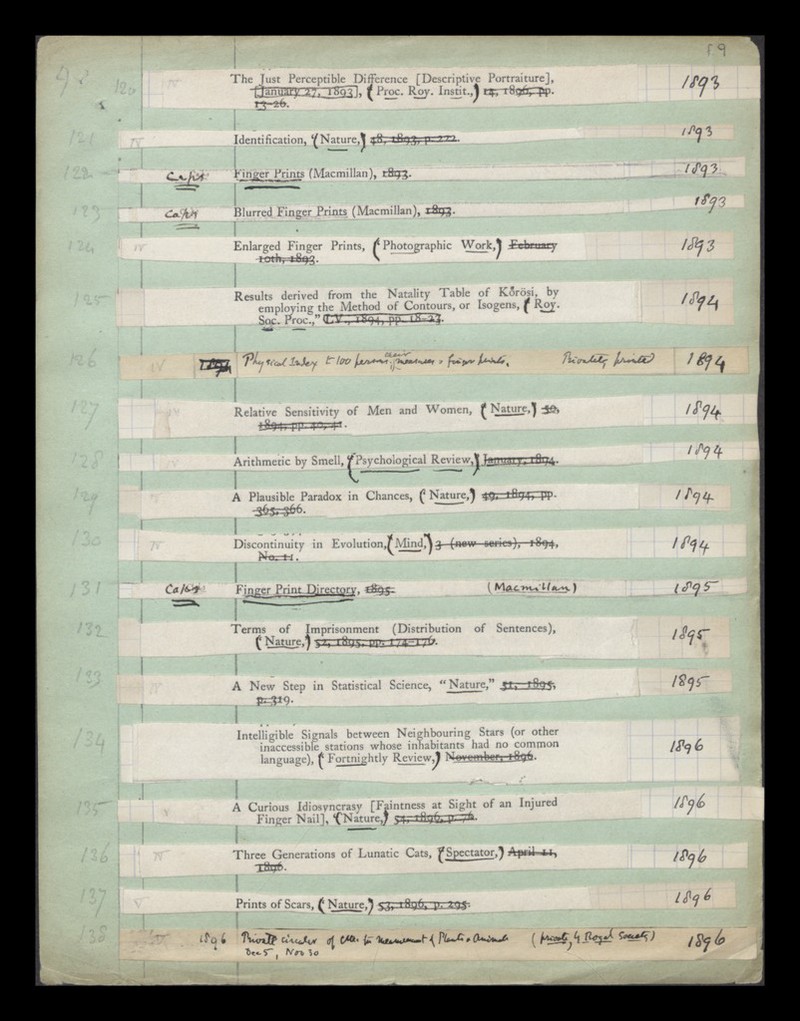 59
120 The Just Perceptible Difference [Descriptive Portraiture], 1893
[January 27, 1893], (Proc. Roy. Instit.,) 14, 1896, pp.
13-26.
121 Identification, (Nature,) 48, 1893, p. 222. 1893
122 Caps Finger Prints (Macmillan), 1893. 1893
123 Caps Blurred Finger Prints (Macmillan), 1893. 1893
124 Enlarged Finger Prints, (Photographic Work,) February 1893
10th, 1893.
125 Results derived from the Natality Table of Kőrösi, by 1894
employing the Method of Contours, or Isogens, (Roy.
Soc. Proc.," LV., 1894, pp. 18-23.
126 Physical Index to 100 persons their measures & finger prints. Privately printed 1894
127 Relative Sensitivity of Men and Women, (Nature,) 50, 1894
1894, pp. 40, 41.
128 Arithmetic by Smell, (Psychological Review,) January, 1894. 1894
129 A Plausible Paradox in Chances, (Nature,) 49, 1894, pp. 1894
365, 366.
130 Discontinuity in Evolution, (Mind,) 3 (new series), 1894, 1894
No. 11.
131 Caps Finger Print Directory, 1895. (Macmillan) 1895
132 Terms of Imprisonment (Distribution of Sentences), 1895
(Nature,) 52, 1895, pp. 174-176.
133 A New Step in Statistical Science, "Nature," 51, 1895, 1895
p. 319.
134 Intelligible Signals between Neighbouring Stars (or other 1896
inaccessible stations whose inhabitants had no common
language), (Fortnightly Review,) November, 1896.
135 A Curious Idiosyncrasy [Faintness at Sight of an Injured 1896
Finger Nail], (Nature,) 54, 1896, p. 76.
136 Three Generations of Lunatic Cats, (Spectator,) April 11, 1896
1896.
137 Prints of Scars, (Nature,) 53, 1896, p. 295. 1896
138 1896 Private circular of Cttee for Measurement of Plants & Animals (privately, by Royal Society) 1896
Dec 5, Nov 30